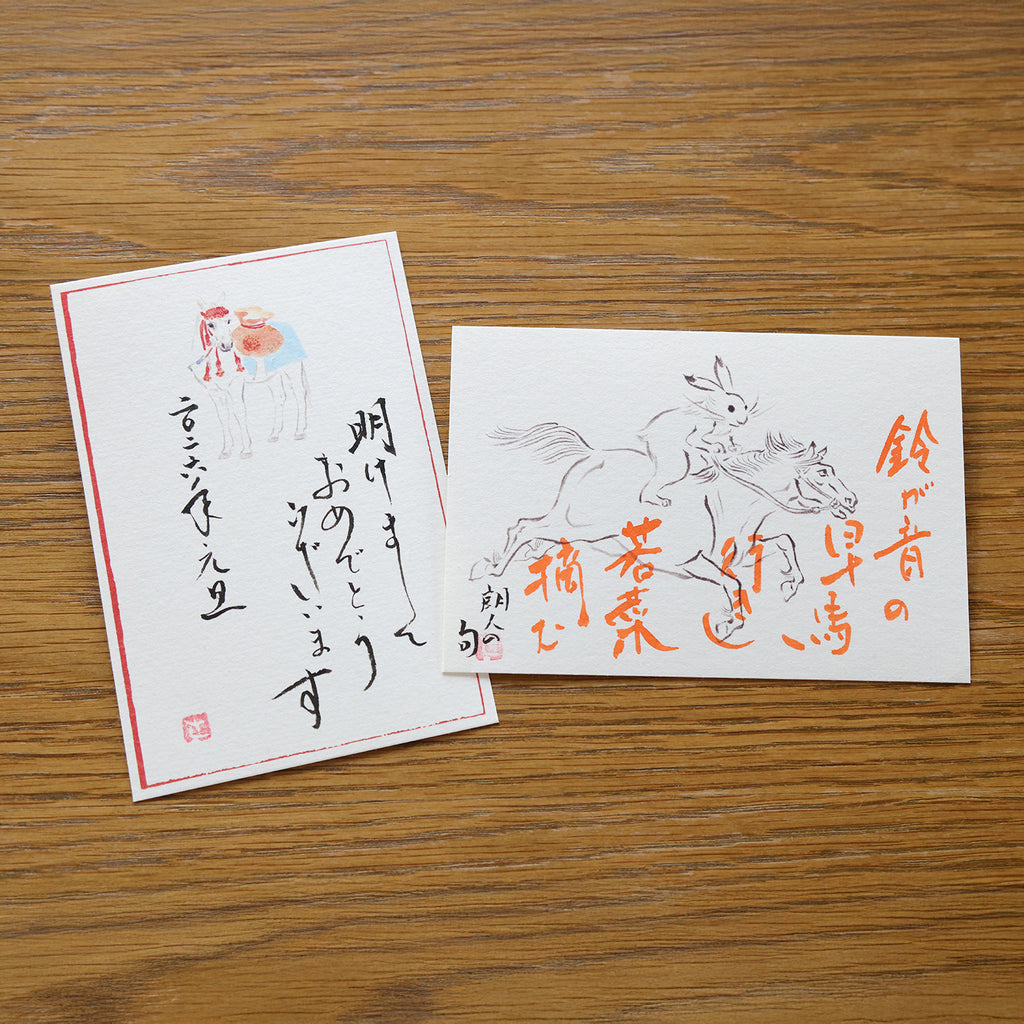 明けまして
おめでとう
ございます
二〇二六年元旦
鈴が音の
早馬
行
若菜
摘む
朗人の
句